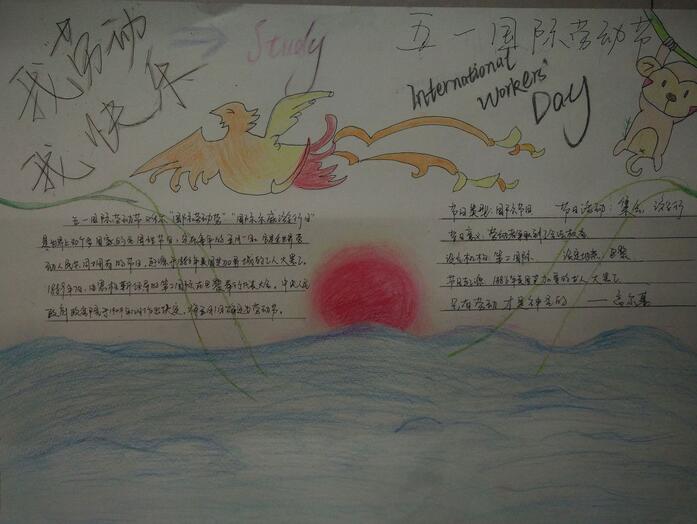 我劳动
我快乐
Study
五一国际劳动节
International
Workers'
Day
五一国际劳动节又称“国际劳动节”“国际示威游行日”
是世界上80个多国家的全国性节日,定在每年的五月一日。它是全世界劳
动人民共同拥有的节日,起源于1886年美国芝加哥城的工人大罢工
1889年7月,由恩格斯领导的第二国际在巴黎举行代表大会。中央人民
政府政务院于1949年12月作出决定,将五月1日确定为劳动节。
节日类型:国际节日 节日活动:集会、游行
节日意义:劳动者争取到了合法权益
设立机构:第二国际 设定地点:巴黎
节日起源:1886年美国芝加哥的工人大罢工
只有劳动才是神圣的 ——高尔基